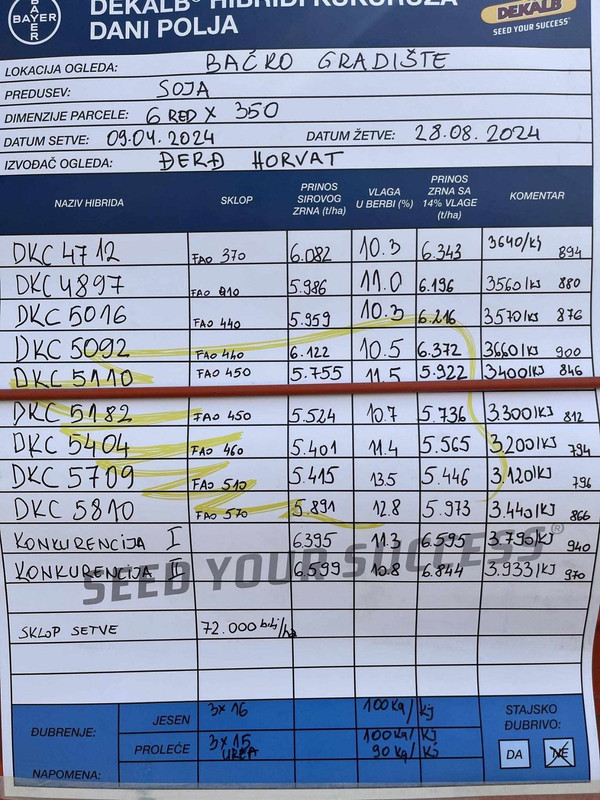 BAYER
DEKALB® HIBRIDI KUKURUZA
DANI POLJA
DEKALB
SEED YOUR SUCCESS
LOKACIJA OGLEDA: BAČKO GRADIŠTE
PREDUSEV: SOJA
DIMENZIJE PARCELE: 6 RED X 350
DATUM SETVE: 09.04.2024 DATUM ŽETVE: 28.08.2024
IZVOĐAČ OGLEDA: ĐERĐ HORVAT
NAZIV HIBRIDA SKLOP PRINOS SIROVOG ZRNA (t/ha) VLAGA U BERBI (%) PRINOS ZRNA SA 14% VLAGE (t/ha) KOMENTAR
DKC 4712 FAO 370 6.082 10.3 6.343 3640/kj 894
DKC 4897 FAO 5.986 11.0 6.196 3560/kj 880
DKC 5016 FAO 440 5.959 10.3 6.216 3570/kj 876
DKC 5092 FAO 440 6.122 10.5 6.372 3660/kj 900
DKC 5110 FAO 450 5.755 11.5 5.922 3400/kj 846
DKC 5182 FAO 450 5.524 10.7 5.736 3.300/kj 812
DKC 5404 FAO 460 5.401 11.4 5.565 3.200/kj 794
DKC 5709 FAO 510 5.415 13.5 5.446 3.120/kj 796
DKC 5810 FAO 570 5.891 12.8 5.973 3.440/kj 866
KONKURENCIJA I 6395 11.3 6.595 3.790/kj 940
KONKURENCIJA II 6.599 10.8 6.844 3.933/kj 970
SEED YOUR SUCCESS®
SKLOP SETVE 72.000 bilj/ha
ĐUBRENJE: JESEN 3x16 100 kg/kj
PROLEĆE 3x15 100 kg/kj
UREA 90 kg/kj
STAJSKO ĐUBRIVO:
DA NE
NAPOMENA: